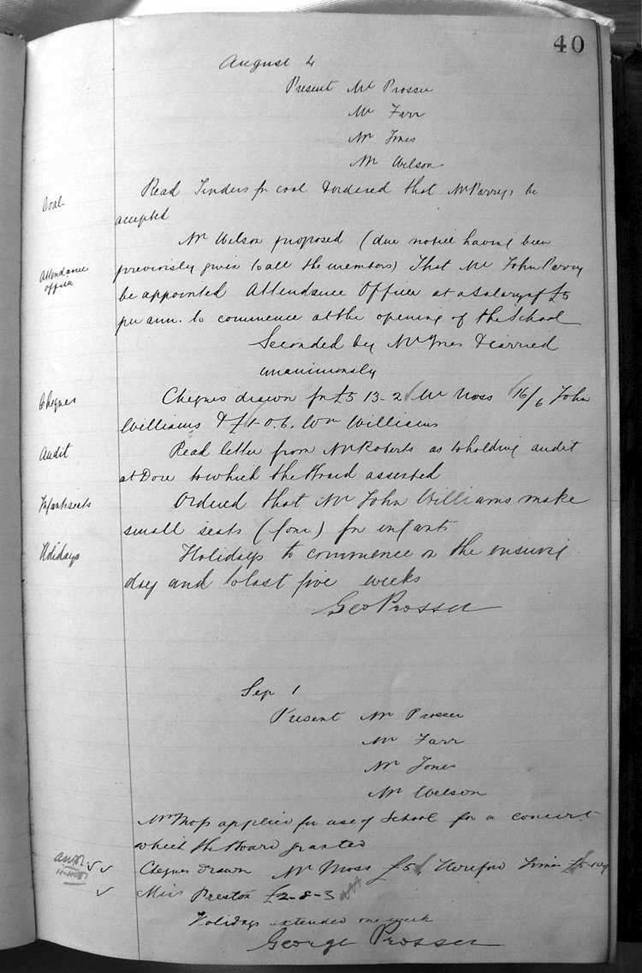 40
August 4
Present Mr Prosser
Mr Farr
Mr Jones
Mr Wilson
Coal
Read Tenders for coal & ordered that Mr Parry's be
accepted
Mr Wilson proposed (due notice having been
Attendance
officer
previously given to all the members) That Mr John Parry
be appointed Attendance Officer at a salary of £5
per ann. to commence at the opening of the School
Seconded by Mr Jones & carried
unanimously
Cheques
Cheques drawn for £5 13-2 Mr Moss 16/6 John
Williams & £1.0.6. Wm Williams
Audit
Read letter from Mr Roberts as to holding audit
at Dore to which the Board assented
Infant seats
Ordered that Mr John Williams make
small seats (four) for infants
Holidays
Holidays to commence on the ensuing
day and to last five weeks
Geo Prosser
Sep 1
Present Mr Prosser
Mr Farr
Mr Jones
Mr Wilson
Mr Moss applied for use of School for a concert
which the Board granted
Cheques drawn Mr Moss £5 Hereford Times
Miss Preston £2-8-3
Holidays extended one week
George Prosser